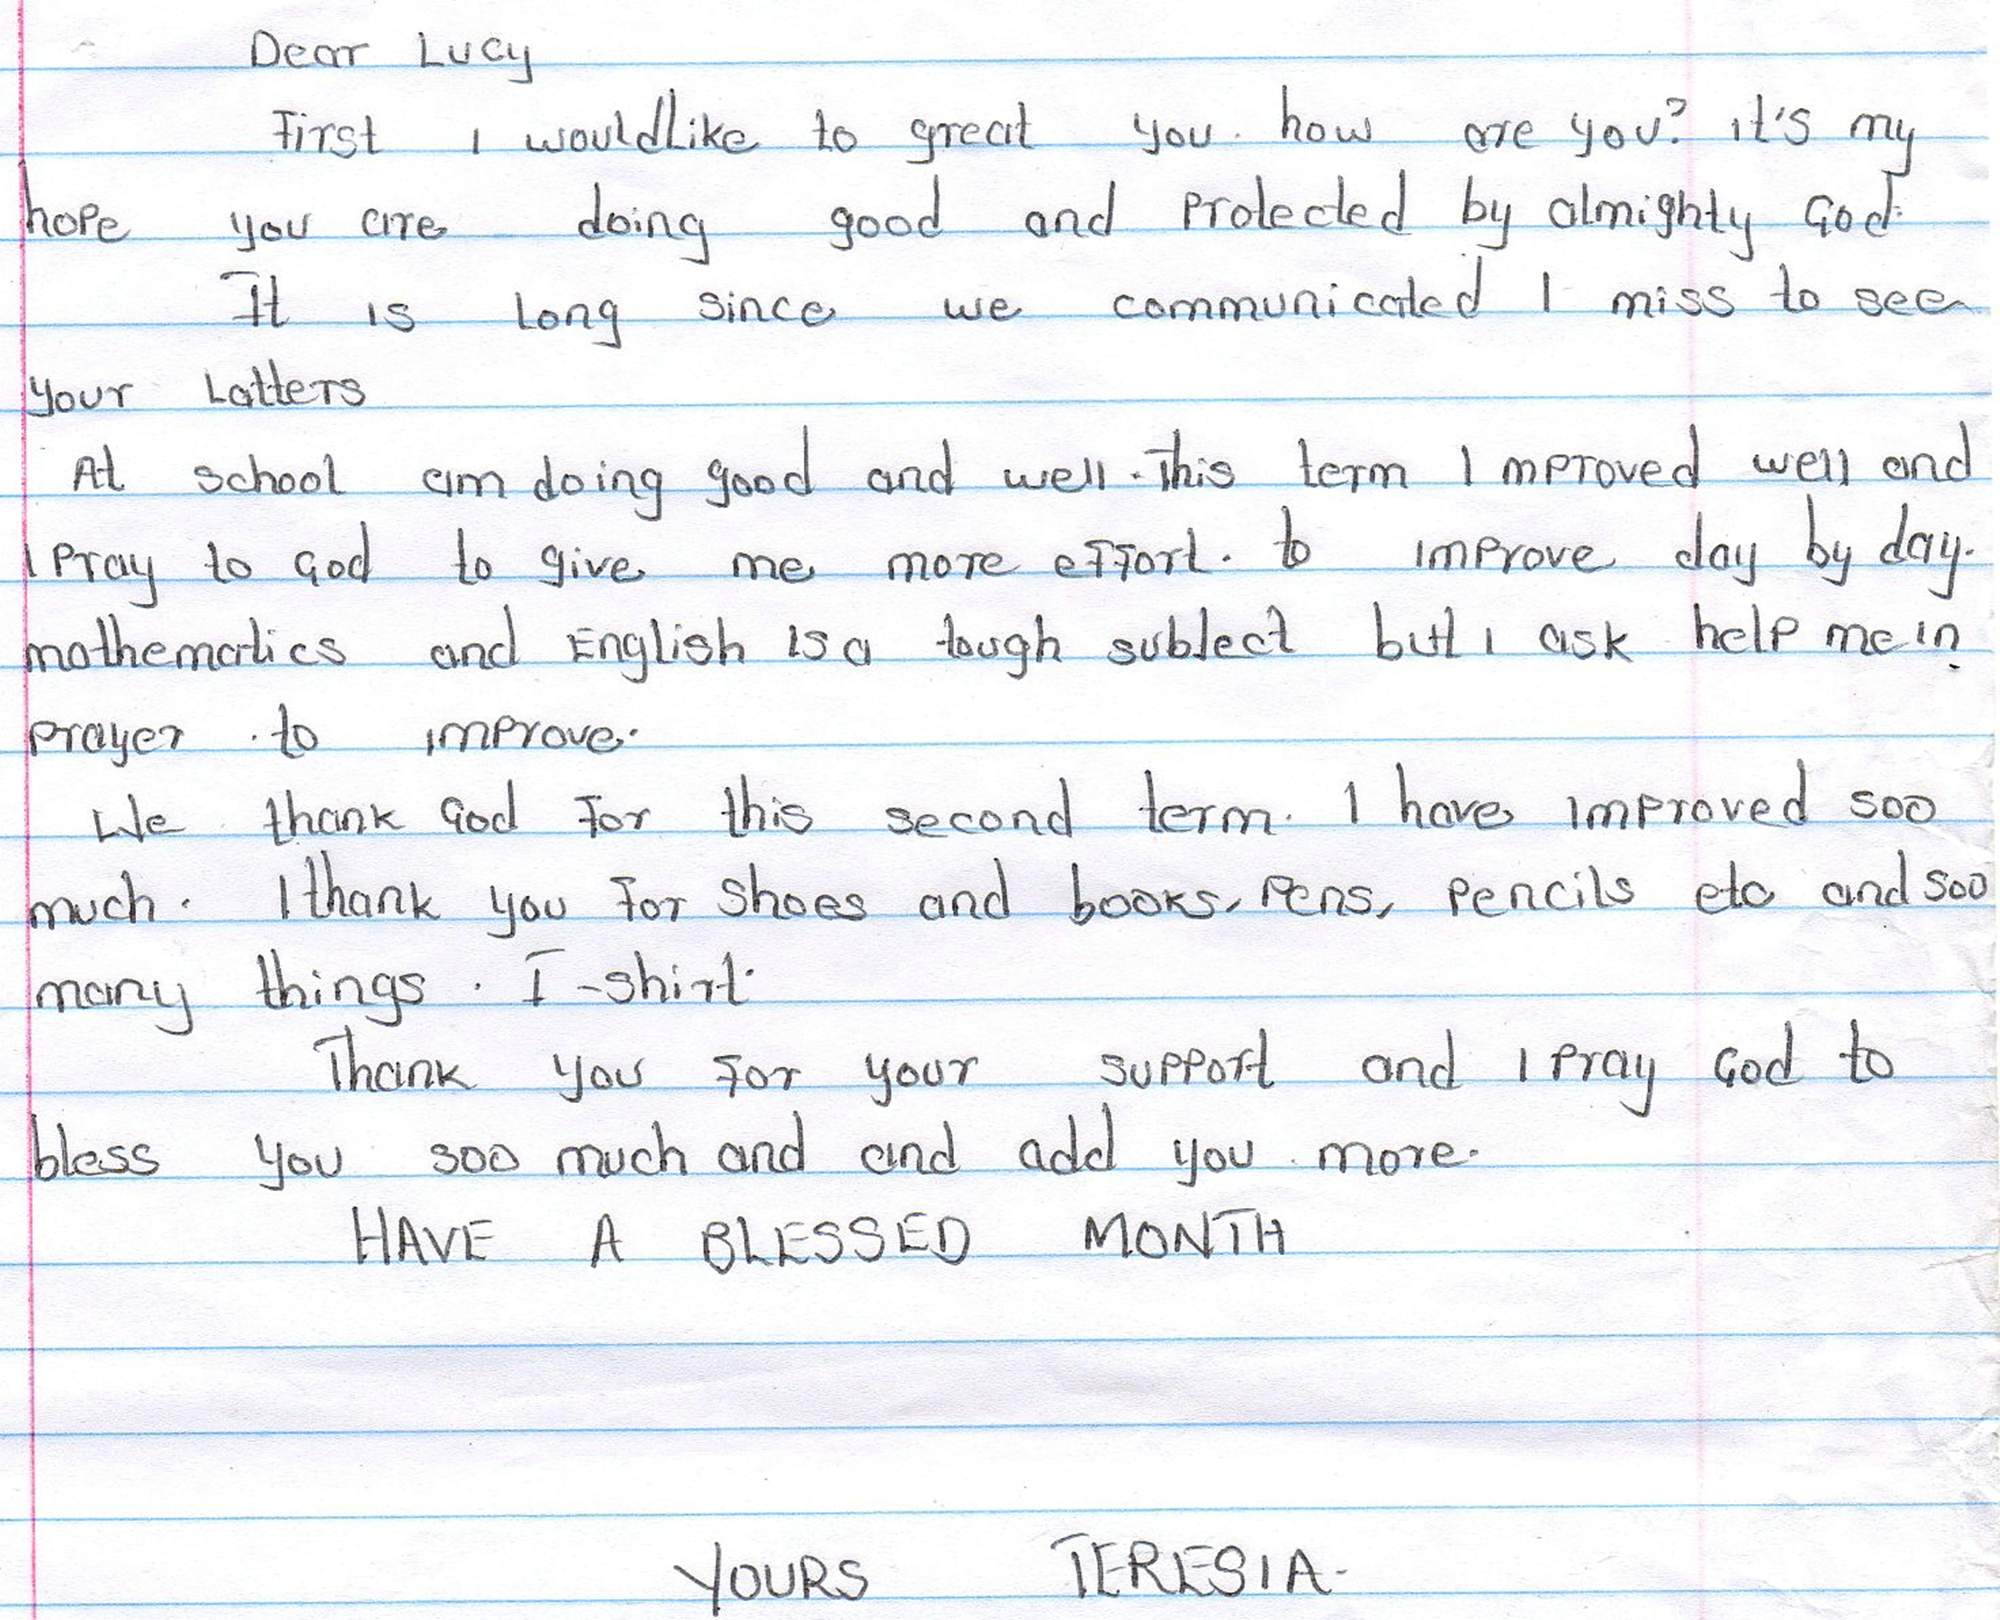 Dear Lucy
First I wouldlike to great you. how are you? it's my
hope you are doing good and protected by almighty God.
It is long since we communicated I miss to see
your Latters
At school am doing good and well. This term I mproved well and
I pray to God to give me more effort. to improve day by day.
mathematics and English is a tough subject but I ask help me in
prayer to improve.
We thank God for this second term. I have improved soo
much. I thank you for shoes and books, pens, pencils etc and soo
many things. T-shirt.
Thank you for your support and I pray God to
bless you soo much and and add you more.
HAVE A BLESSED MONTH
YOURS TERESIA.